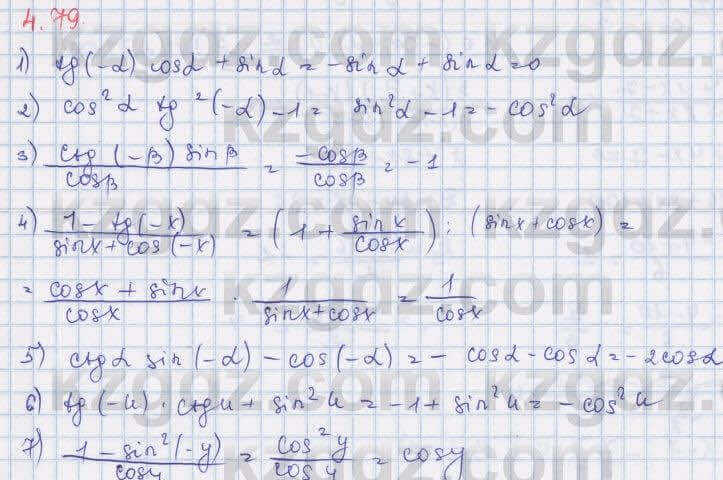 4.79
1) tg(-α) cosα + sinα = -sinα + sinα = 0
2) cos²α tg²(-α) - 1 = sin²α - 1 = -cos²α
3) ctg(-β) sinβ / cosβ = -cosβ / cosβ = -1
4) 1 - tg(-x) / sinx + cos(-x) = (1 + sinx / cosx) : (sinx + cosx) =
= cosx + sinx / cosx · 1 / sinx + cosx = 1 / cosx
5) ctgα sin(-α) - cos(-α) = - cosα - cosα = -2cosα
6) tg(-u) · ctgu + sin²u = -1 + sin²u = -cos²u
7) 1 - sin²(-y) / cosy = cos²y / cosy = cosy
kzgdz.
kzgdz.
kzgdz.
kzgdz.
kzgdz.
kzgdz.